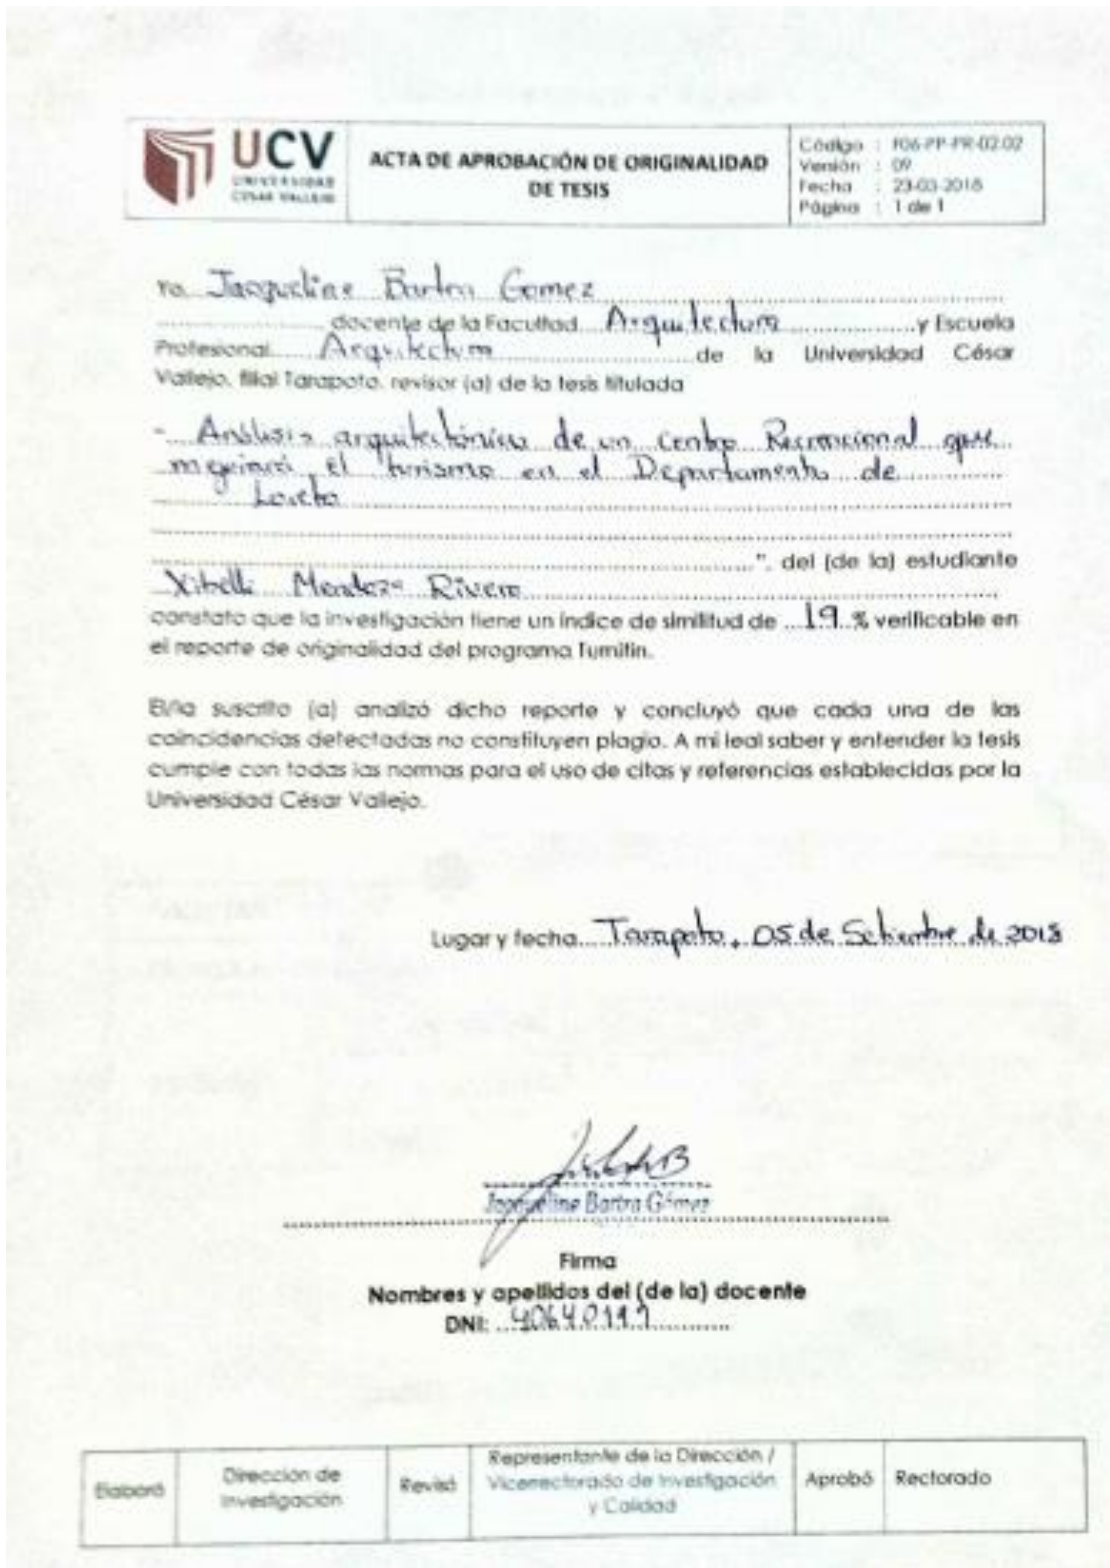 UCV
UNIVERSIDAD
CÉSAR VALLEJO
ACTA DE APROBACIÓN DE ORIGINALIDAD
DE TESIS
Código : F06-PP-PR-02.02
Versión : 09
Fecha : 23-03-2018
Página : 1 de 1
Yo, Jacqueline Bartra Gomez
docente de la Facultad Arquitectura y Escuela
Profesional Arquitectura de la Universidad César
Vallejo, filial Tarapoto, revisor (a) de la tesis titulada
"Análisis arquitectónico de un Centro Recreacional que
mejorará el turismo en el Departamento de
Loreto
", del (de la) estudiante
Mendoza Rivero
constato que la investigación tiene un índice de similitud de 19 % verificable en
el reporte de originalidad del programa Turnitin.
El/la suscrito (a) analizó dicho reporte y concluyó que cada una de las
coincidencias detectadas no constituyen plagio. A mi leal saber y entender la tesis
cumple con todas las normas para el uso de citas y referencias establecidas por la
Universidad César Vallejo.
Lugar y fecha Tarapoto, 05 de Setiembre de 2018
Jacqueline Bartra Gómez
Firma
Nombres y apellidos del (de la) docente
DNI:
Elaboró
Dirección de
Investigación
Revisó
Representante de la Dirección /
Vicerrectorado de Investigación
y Calidad
Aprobó
Rectorado